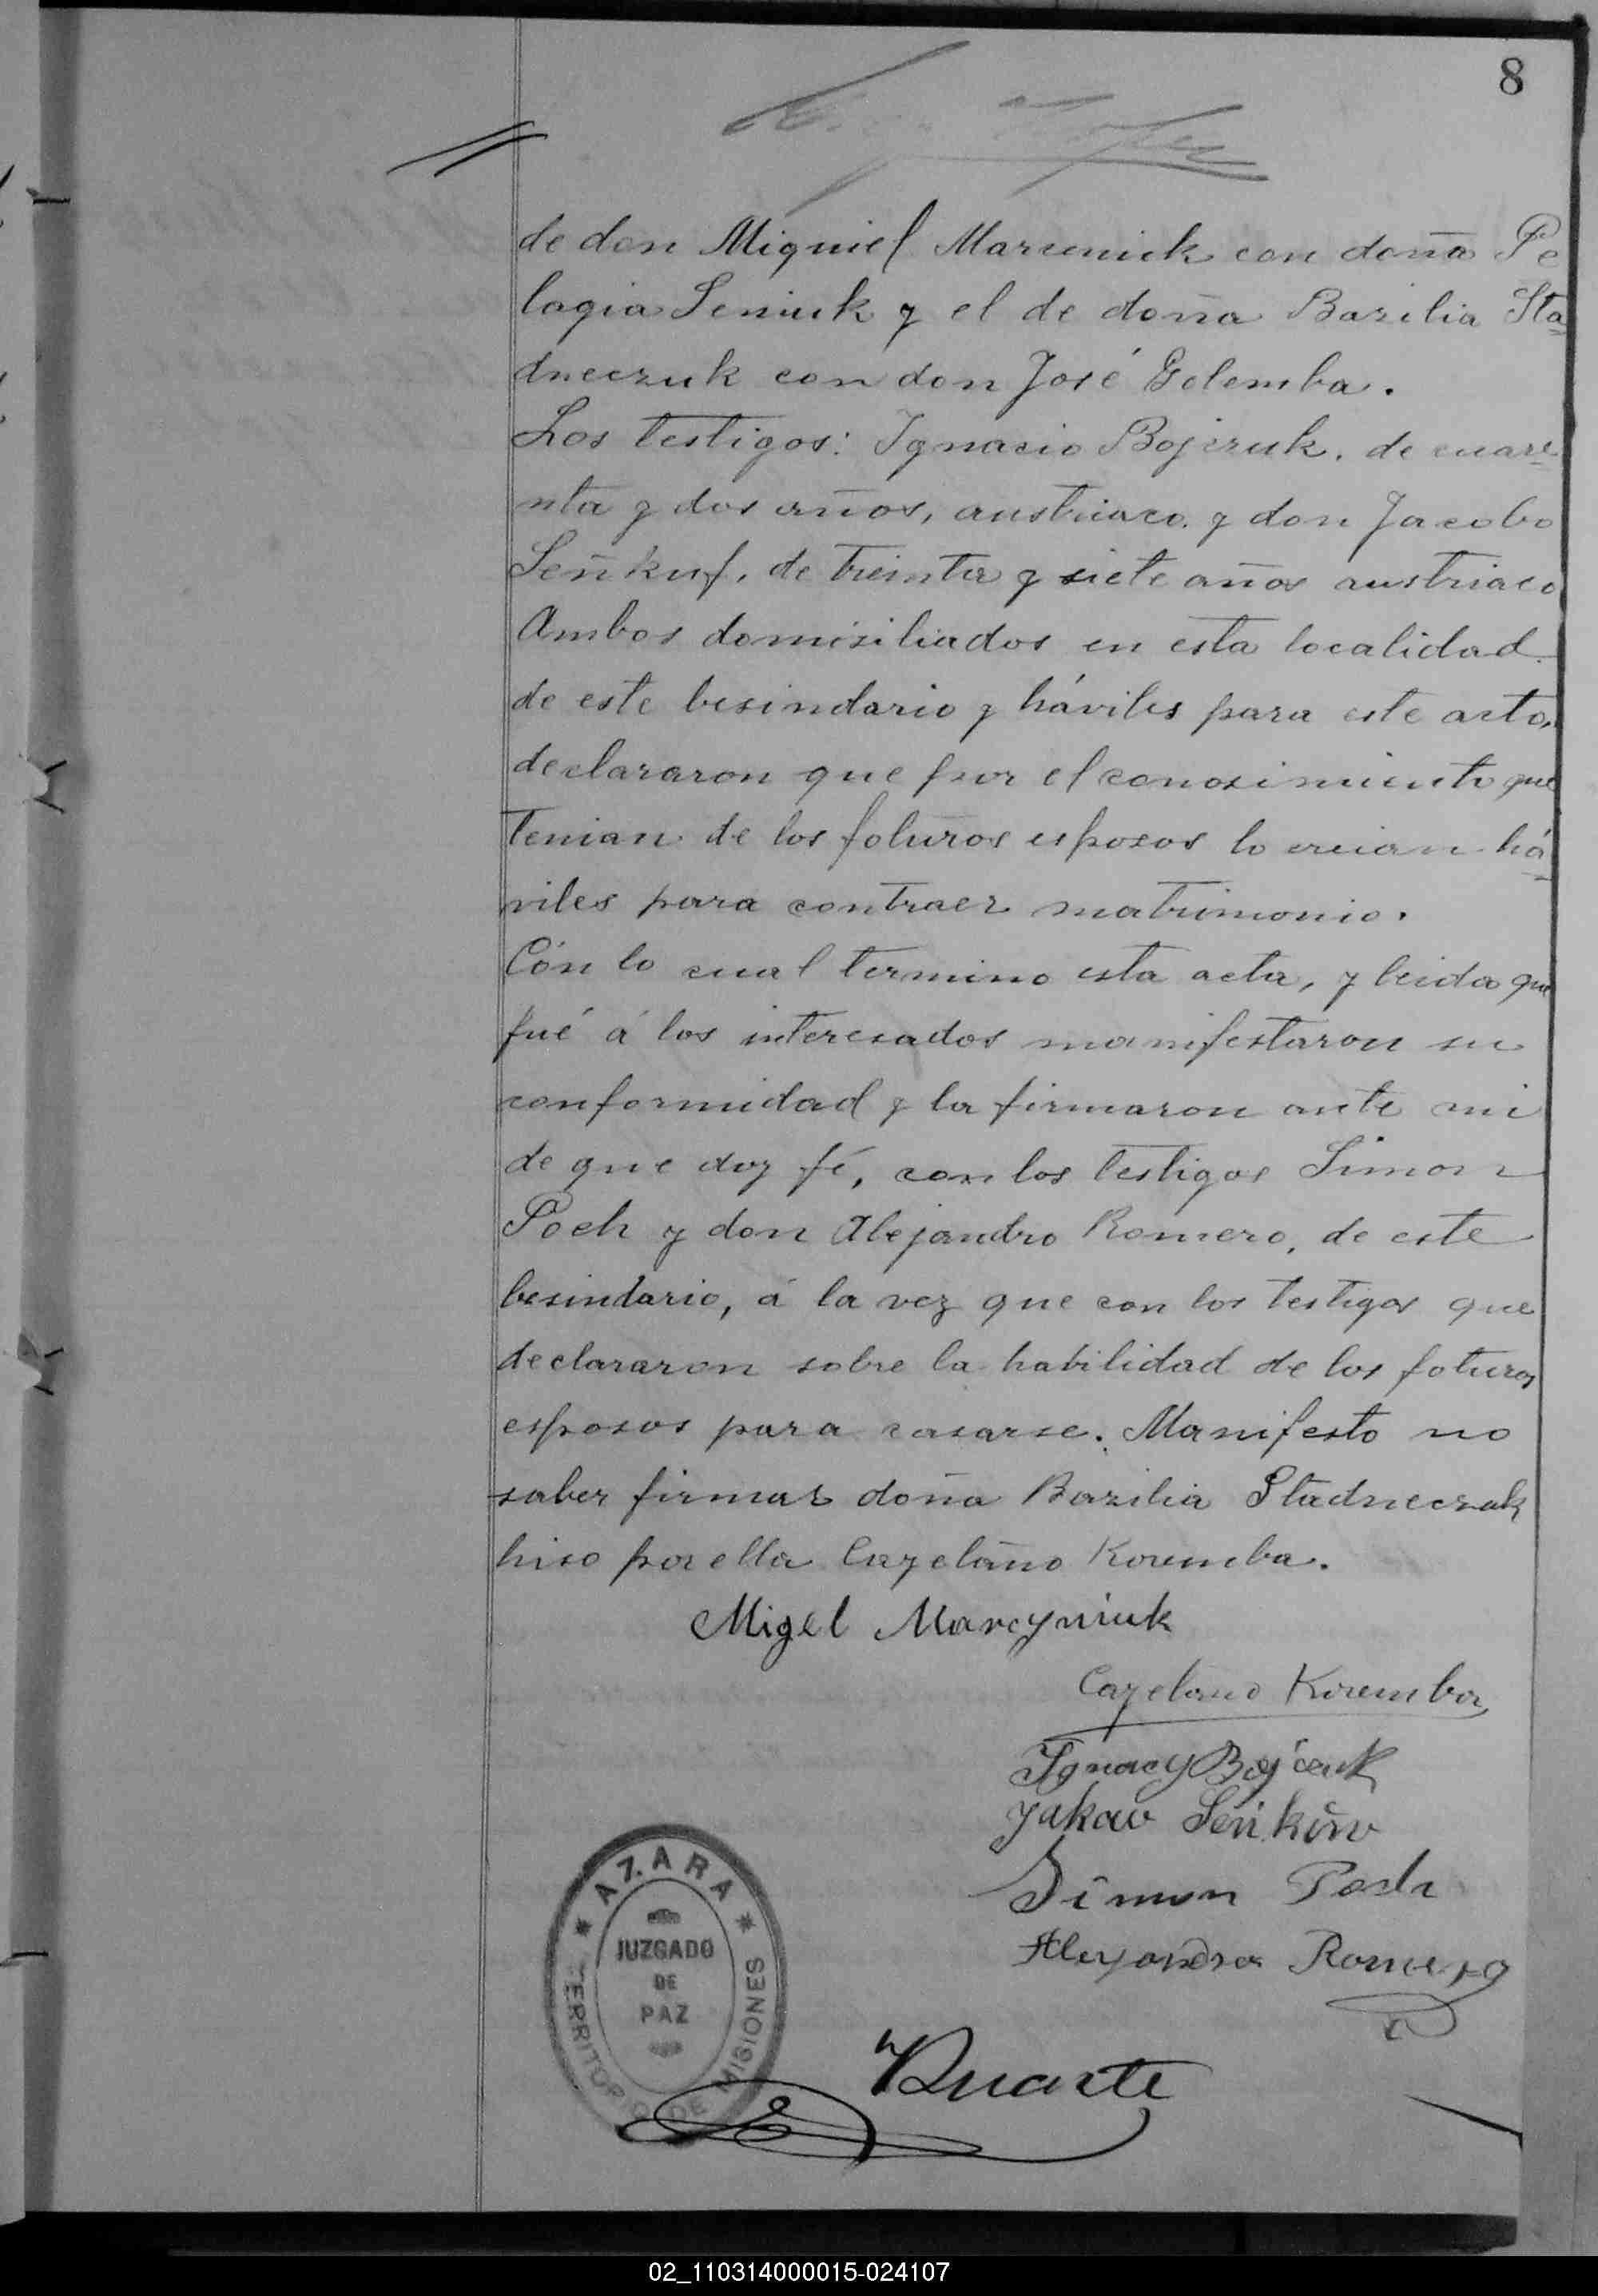 8
de don Miguiel Marceniuk con doña Pe
lagia Seniuk y el de doña Bazilia Sta
dneczuk con don José Golemba.
Los testigos: Ignacio Bojczuk, de cuare
nta y dos años, austriaco, y don Jacobo
Señkuf, de treinta y siete años austriaco
Ambos domisiliados en esta localidad
de este besindario y háviles para este acto,
declararon que por el conosimiento que
tenian de los foturos esposos lo creian há
viles para contraer matrimonio.
Cón lo cual termino esta acta, y leida que
fué á los interesados manifestaron su
conformidad y la firmaron ante mi
de que doy fé, con los testigos Simon
Poch y don Alejandro Romero, de este
besindario, á la vez que con los testigos que
declararon sobre la habilidad de los foturos
esposos para casarse. Manifesto no
saber firmar doña Bazilia Stadneczuk
hiso por ella Cayelano Koremba.
Migel Marcyniuk
Cayelano Koremba
Ignacy Bojczuk
Jakow Señkiw
Simon Poch
Alejandro Romero
Duarte
* AZARA *
JUZGADO
DE
PAZ
TERRITORIO DE MISIONES
02_110314000015-024107